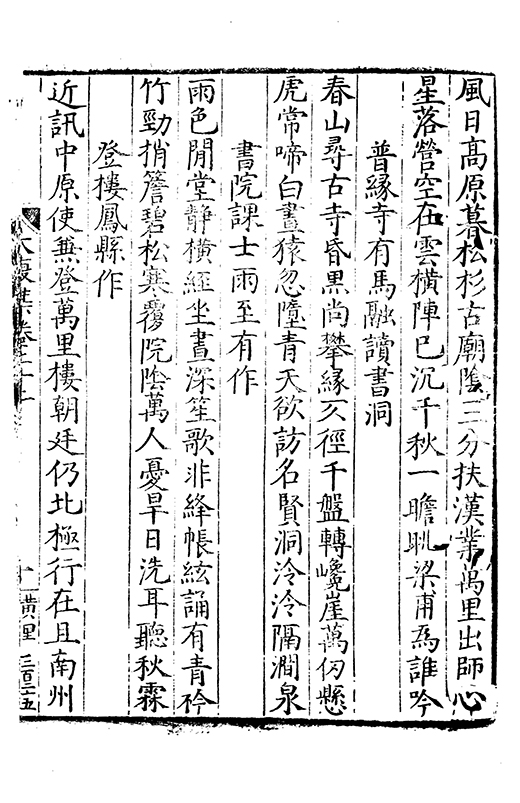 風日高原暮松杉古廟陰三分扶漢業萬里出師心
星落營空在雲橫陣已沉千秋一瞻眺梁甫爲誰吟
普縁寺有馬融讀書洞
春山尋古寺昏黑尚攀縁仄徑千盤轉巉崖萬仞懸
虎常啼白晝猿忽墮青天欲訪名賢洞泠泠隔澗泉
書院課士雨至有作
雨色閒堂静橫經坐晝深笙歌非絳帳絃誦有青衿
竹勁梢簷碧松寒覆院陰萬人憂旱日洗耳聽秋霖
登樓鳳縣作
近訊中原使無登萬里樓朝廷仍北極行在且南州
黄里 三百二五